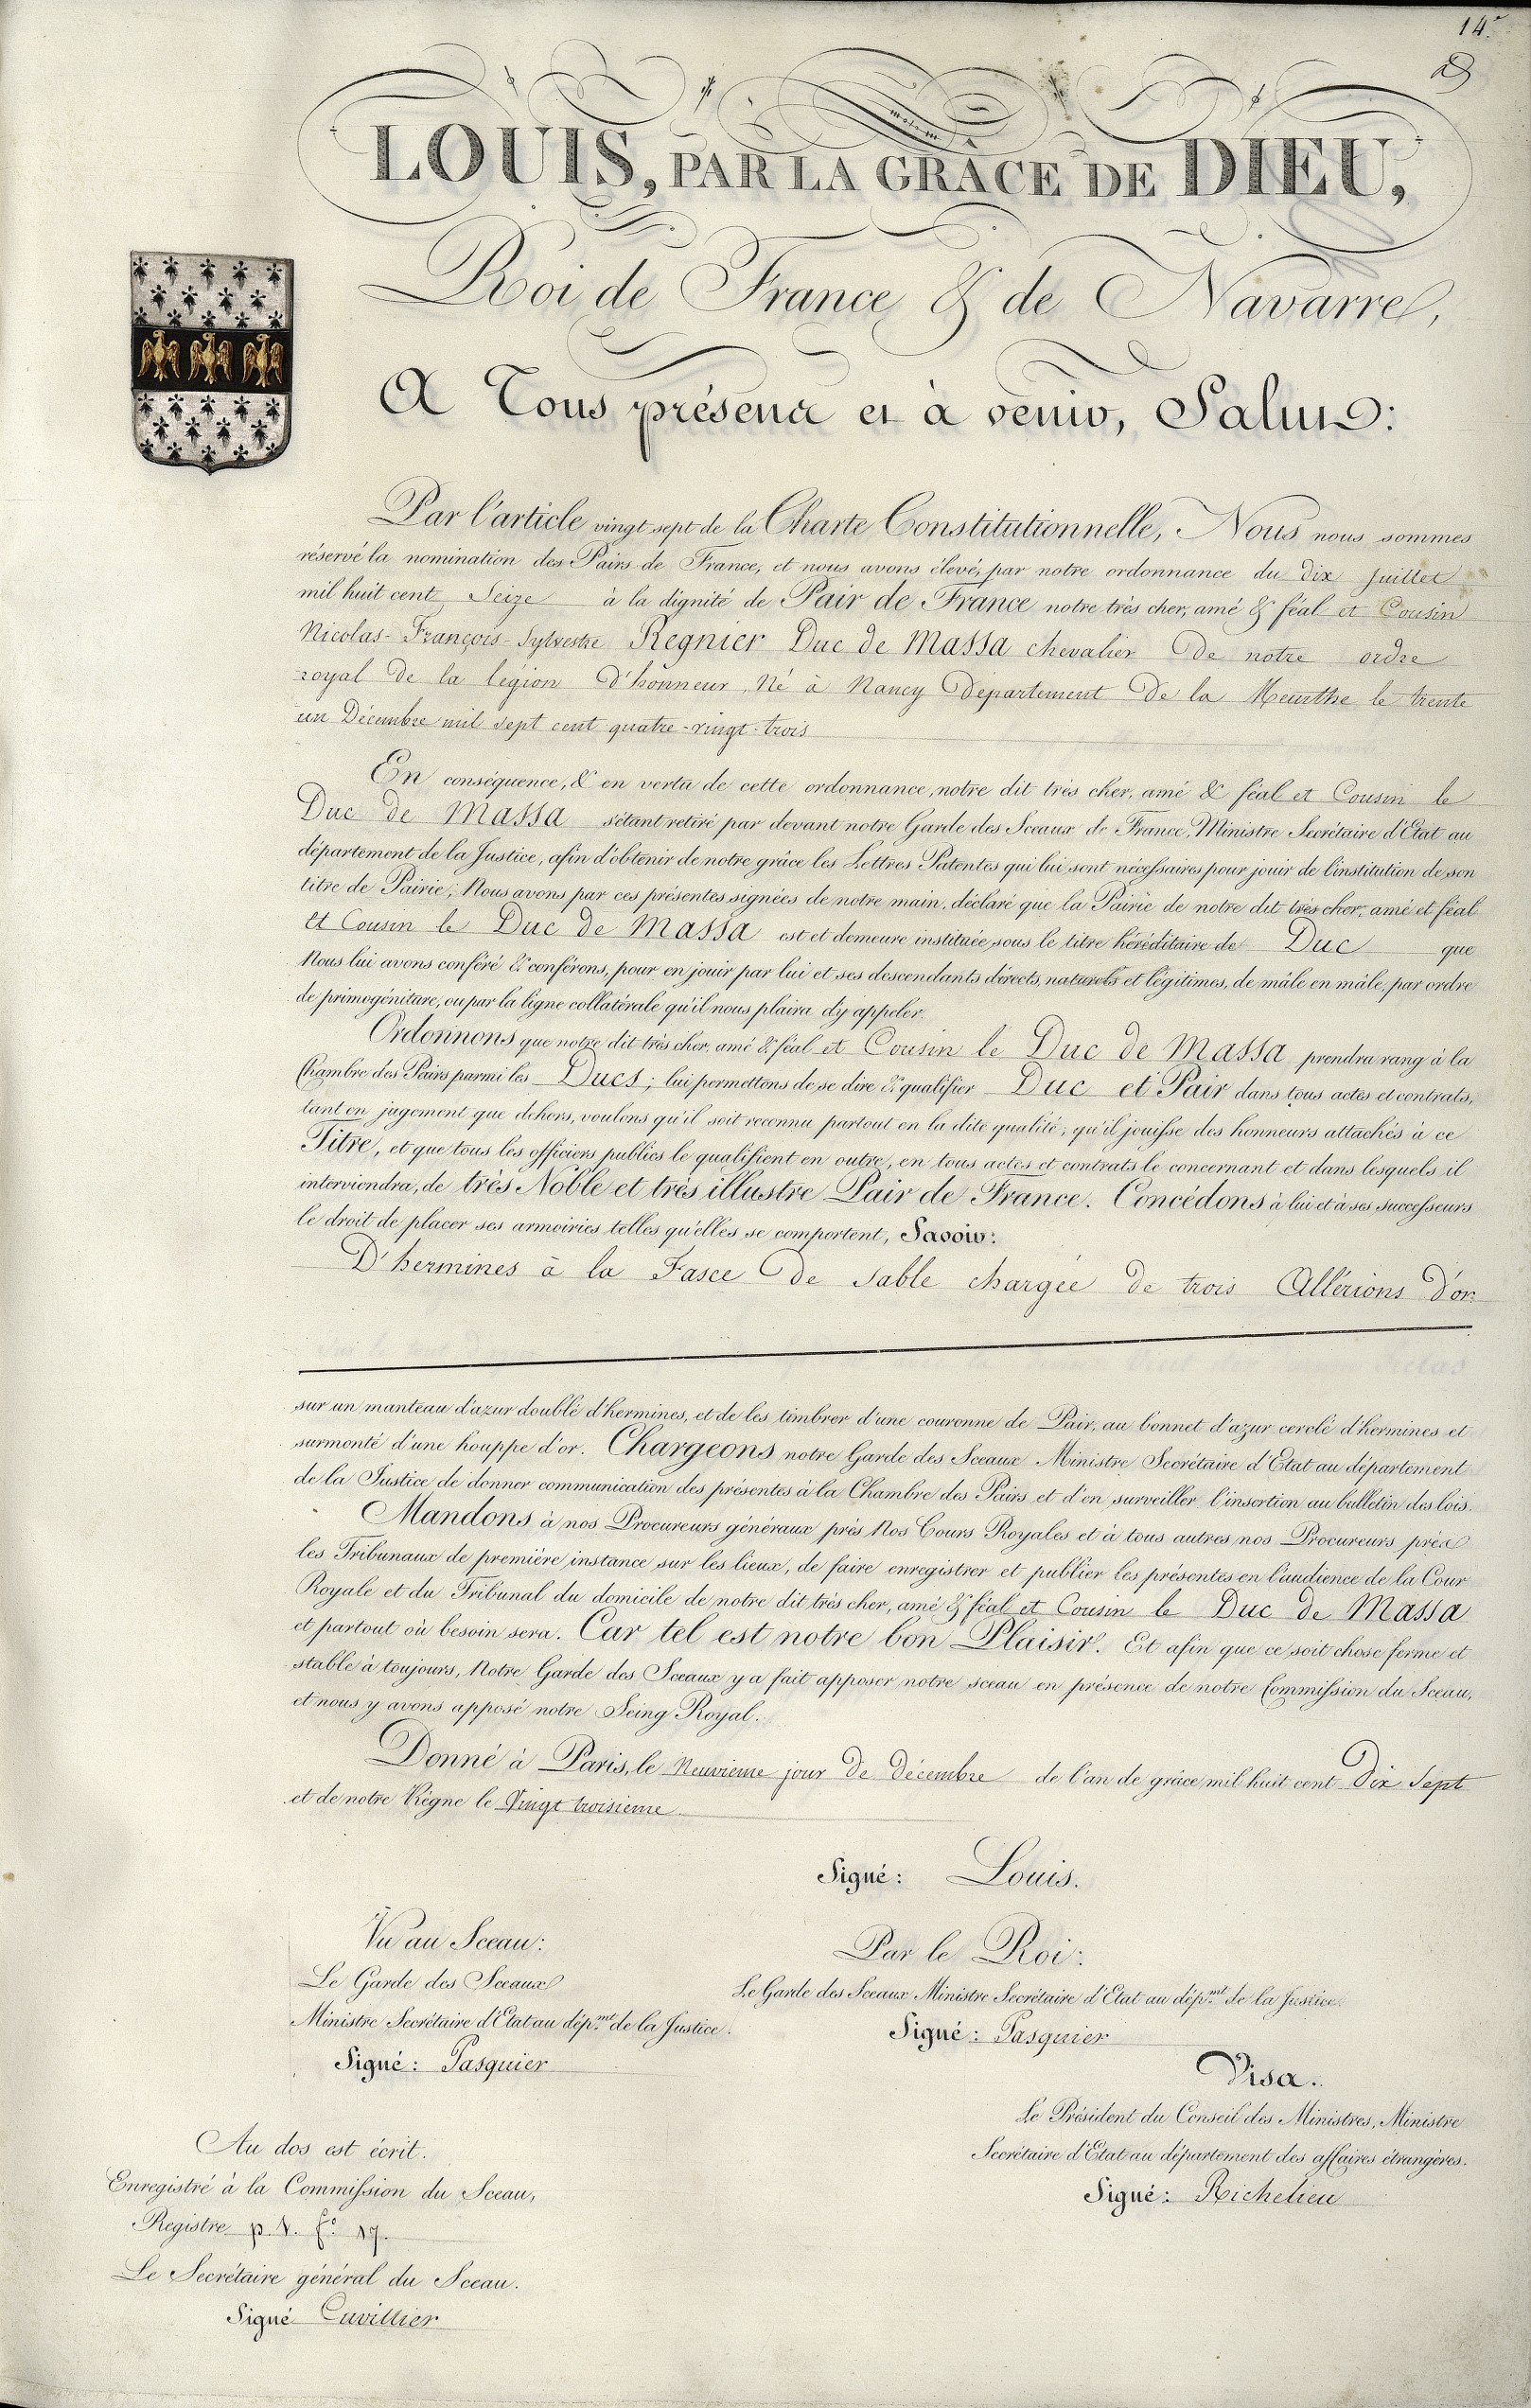 14.
LOUIS, PAR LA GRÂCE DE DIEU,
Roi de France & de Navarre,
A Tous présens et à venir, Salut:
Par l'article vingt sept de la Charte Constitutionnelle, Nous nous sommes
réservé la nomination des Pairs de France, et nous avons élevé, par notre ordonnance du dix Juillet
mil huit cent Seize à la dignité de Pair de France notre très cher, amé & féal et Cousin
Nicolas-François-Sylvestre Regnier Duc de Massa chevalier De notre ordre
royal De la légion D'honneur, Né à Nancy Département De la Meurthe le trente
un Décembre mil sept cent quatre-vingt-trois
En conséquence, & en vertu de cette ordonnance, notre dit très cher, amé & féal et Cousin le
Duc de Massa s'étant retiré par devant notre Garde des Sceaux de France, Ministre Secrétaire d'Etat au
département de la Justice, afin d'obtenir de notre grâce les Lettres Patentes qui lui sont nécessaires pour jouir de l'institution de son
titre de Pairie; Nous avons par ces présentes signées de notre main, déclaré que la Pairie de notre dit très cher, amé et féal
et Cousin le Duc de Massa est et demeure instituée sous le titre héréditaire de Duc que
Nous lui avons conféré & conférons, pour en jouir par lui et ses descendants directs, naturels et légitimes, de mâle en mâle, par ordre
de primogéniture, ou par la ligne collatérale qu'il nous plaira d'y appeler.
Ordonnons que notre dit très cher, amé & féal et Cousin le Duc de Massa prendra rang à la
Chambre des Pairs parmi les Ducs; lui permettons de se dire & qualifier Duc et Pair dans tous actes et contrats,
tant en jugement que dehors, voulons qu'il soit reconnu partout en la dite qualité, qu'il jouisse des honneurs attachés à ce
Titre, et que tous les officiers publics le qualifient en outre, en tous actes et contrats le concernant et dans lesquels il
interviendra, de très Noble et très illustre Pair de France. Concédons à lui et à ses successeurs
le droit de placer ses armoiries telles qu'elles se comportent, Savoir:
D'hermines à la Fasce De Sable chargée De trois Allérions D'or
sur un manteau d'azur doublé d'hermines, et de les timbrer d'une couronne de Pair, au bonnet d'azur cerclé d'hermines et
surmonté d'une houppe d'or. Chargeons notre Garde des Sceaux Ministre Secrétaire d'Etat au département
de la Justice de donner communication des présentes à la Chambre des Pairs et d'en surveiller l'insertion au bulletin des lois.
Mandons à nos Procureurs généraux près Nos Cours Royales et à tous autres nos Procureurs près
les Tribunaux de première instance sur les lieux, de faire enregistrer et publier les présentes en l'audience de la Cour
Royale et du Tribunal du domicile de notre dit très cher, amé & féal et Cousin le Duc de Massa
et partout où besoin sera. Car tel est notre bon Plaisir. Et afin que ce soit chose ferme et
stable à toujours, Notre Garde des Sceaux y a fait apposer notre sceau en présence de notre Commission du Sceau,
et nous y avons apposé notre Seing Royal.
Donné à Paris, le Neuvième jour De décembre de l'an de grâce mil huit cent Dix Sept
et de notre Règne le Vingt troisième
Signé: Louis.
Vu au Sceau:
Le Garde des Sceaux
Ministre Secrétaire d'Etat au dép.mt de la Justice.
Signé: Pasquier
Par le Roi:
Le Garde des Sceaux Ministre Secrétaire d'Etat au dép.mt de la Justice.
Signé: Pasquier
Visa.
Le Président du Conseil des Ministres, Ministre
Secrétaire d'Etat au département des affaires étrangères.
Signé: Richelieu
Au dos est écrit.
Enregistré à la Commission du Sceau,
Registre p. f.o 17.
Le Secrétaire général du Sceau.
Signé Cuvillier